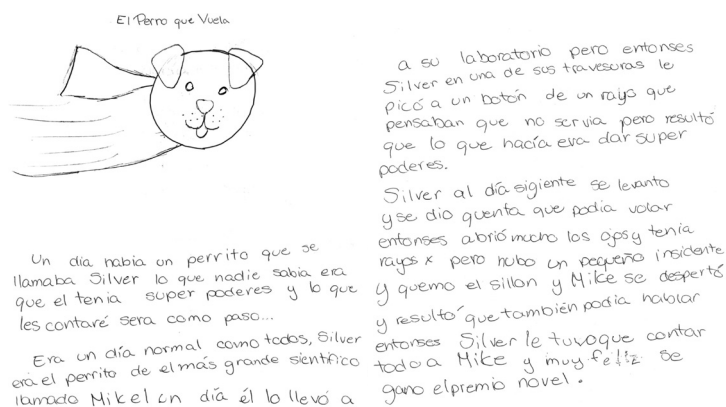 El Perro que Vuela
Un día había un perrito que se
llamaba Silver lo que nadie sabía era
que el tenia super poderes y lo que
les contaré sera como paso...
Era un día normal como todos, Silver
era el perrito de el más grande sientifico
llamado Mikel un día él lo llevó a
a su laboratorio pero entonses
Silver en una de sus travesuras le
picó a un botón de un rayo que
pensaban que no servia pero resultó
que lo que hacía era dar super
poderes.
Silver al día sigiente se levanto
y se dio quenta que podia volar
entonses abrió mucho los ojos y tenia
rayos x pero hubo un pequeño insidente
y quemo el sillon y Mike se despertó
y resultó que también podia hablar
entonses Silver le tuvo que contar
todo a Mike y muy feliz se
gano el premio novel.